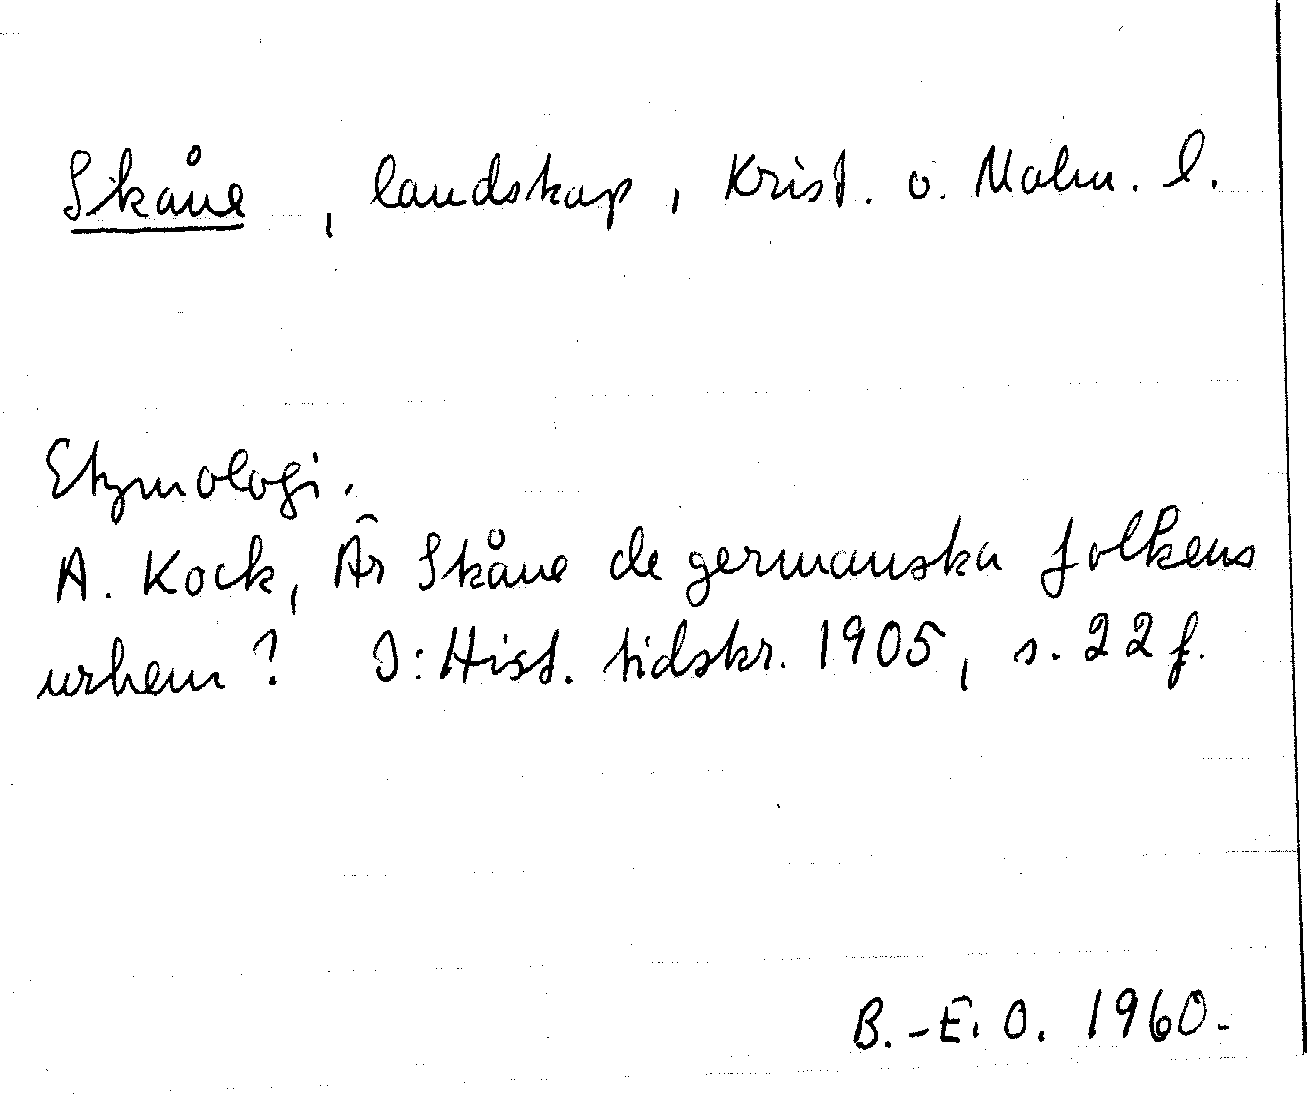 Skåne, landskap, Krist. o. Malm. l.
Etymologi.
A. Kock, Är Skåne de germanska folkens
urhem? I: Hist. tidskr. 1905, s. 22 f.
B.-E. O. 1960.